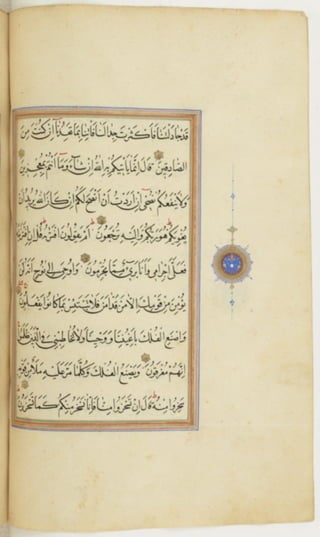 قد جادلتنا فاكثرت جدالنا فاتنا بما تعدنا ان كنت من
الصادقين قال انما ياتيكم به الله ان شاء وما انتم بمعجزين
ولا ينفعكم نصحي ان اردت ان انصح لكم ان كان الله يريد ان
يغويكم هو ربكم واليه ترجعون ام يقولون افتريه قل ان افتريته
فعلي اجرامي وانا بريء مما تجرمون واوحي الى نوح انه لن
يؤمن من قومك الا من قد امن فلا تبتئس بما كانوا يفعلون
واصنع الفلك باعيننا ووحينا ولا تخاطبني في الذين ظلموا
انهم مغرقون ويصنع الفلك وكلما مر عليه ملا من قومه
سخروا منه قال ان تسخروا منا فانا نسخر منكم كما تسخرون